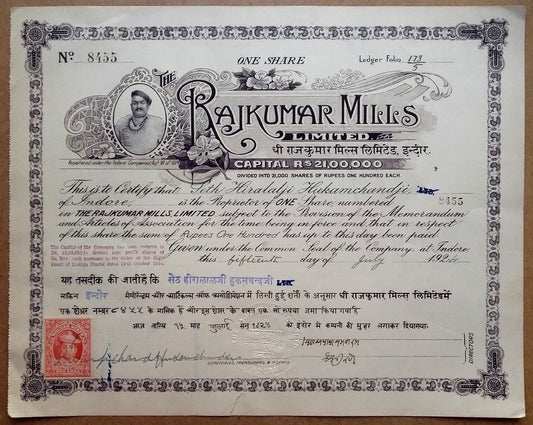 Nº 8455
ONE SHARE
Ledger Folio 173/5
THE
RAJKUMAR MILLS
LIMITED.
श्री राजकुमार मिल्स लिमिटेड, इन्दौर.
CAPITAL RS 21,00,000
DIVIDED INTO 21,000 SHARES OF RUPEES ONE HUNDRED EACH.
Registered under the Indore Companies Act
This is to Certify that Seth Hiralalji Hukamchandji,
of Indore, is the Proprietor of ONE Share, numbered 8455
in THE RAJKUMAR MILLS, LIMITED subject to the Provision of the Memorandum
and Articles of Association for the time being in force and that in respect
of this share the sum of Rupees One Hundred has up to this day been paid
The Capital of the Company has been reduced to
divided into
each pursuant to the Order of the High
Court of
Given under the Common Seal of the Company, at Indore
this fifteenth day of July 192
यह तसदीक की जातीहै कि सेठ हीरालालजी हुकमचन्दजी
साकिन इन्दौर मेमोरेन्डम और आर्टिकल्स ऑफ असोसिएशन में लिखी हुई शर्तों के अनुसार श्री राजकुमार मिल्स लिमिटेडमें
एक शेअर नम्बर ८४५५ के मालिक हैं और इस शेअर के बाबत एक सौ रुपया जमा किया गयाहै
आज तारीख १५ माह जुलाई सन् को इन्दौर में कम्पनी की मुहर लगाकर दियागया.
SECRETARIES, TREASURERS & AGENTS.
DIRECTORS